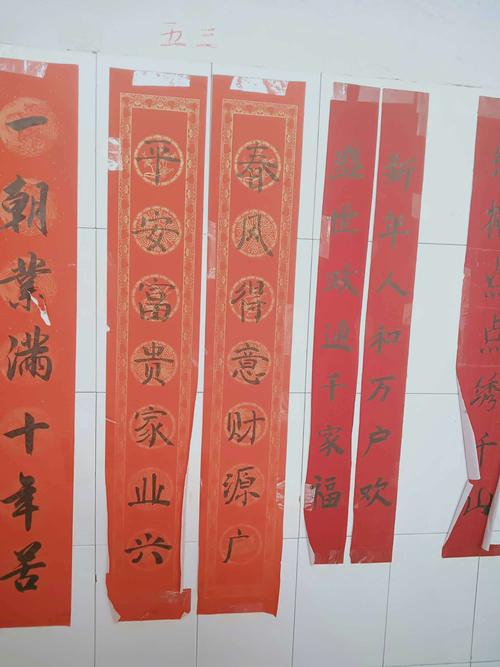 五三
一朝業满十年苦
平安富贵家业兴
春风得意财源广
盛世政通千家福
新年人和万户欢
点点绣千山